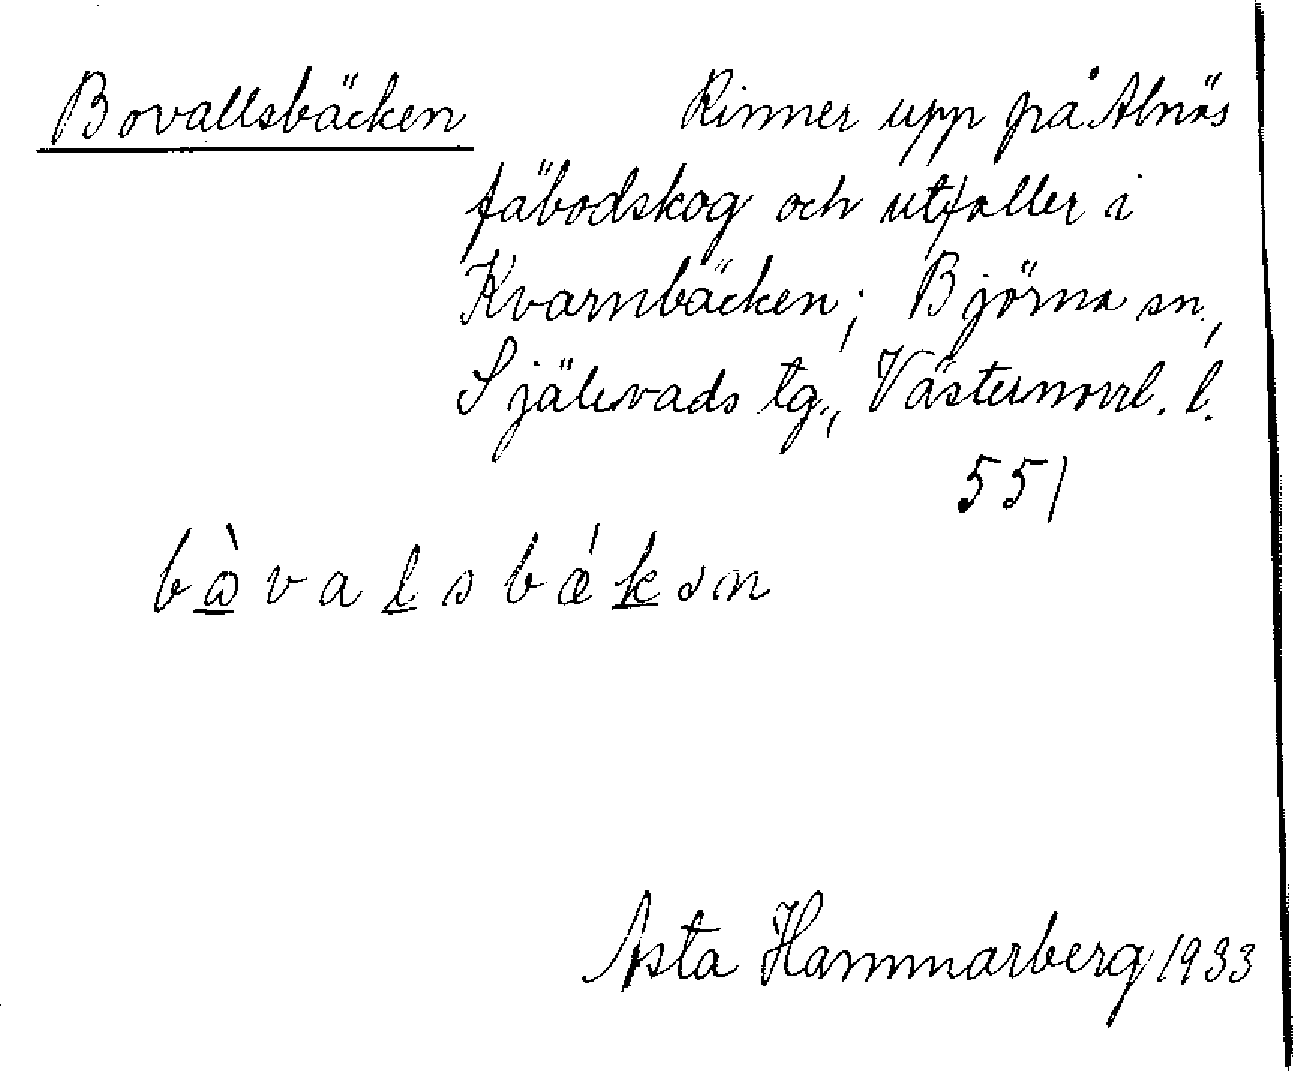 Bovallsbäcken Rinner upp på Alnäs
fäbodskog och utfaller i
Kvarnbäcken; Björna sn,
Själevads tg., Västernorrl. l.
551
bòvalsbǽkən
Asta Hammarberg 1933